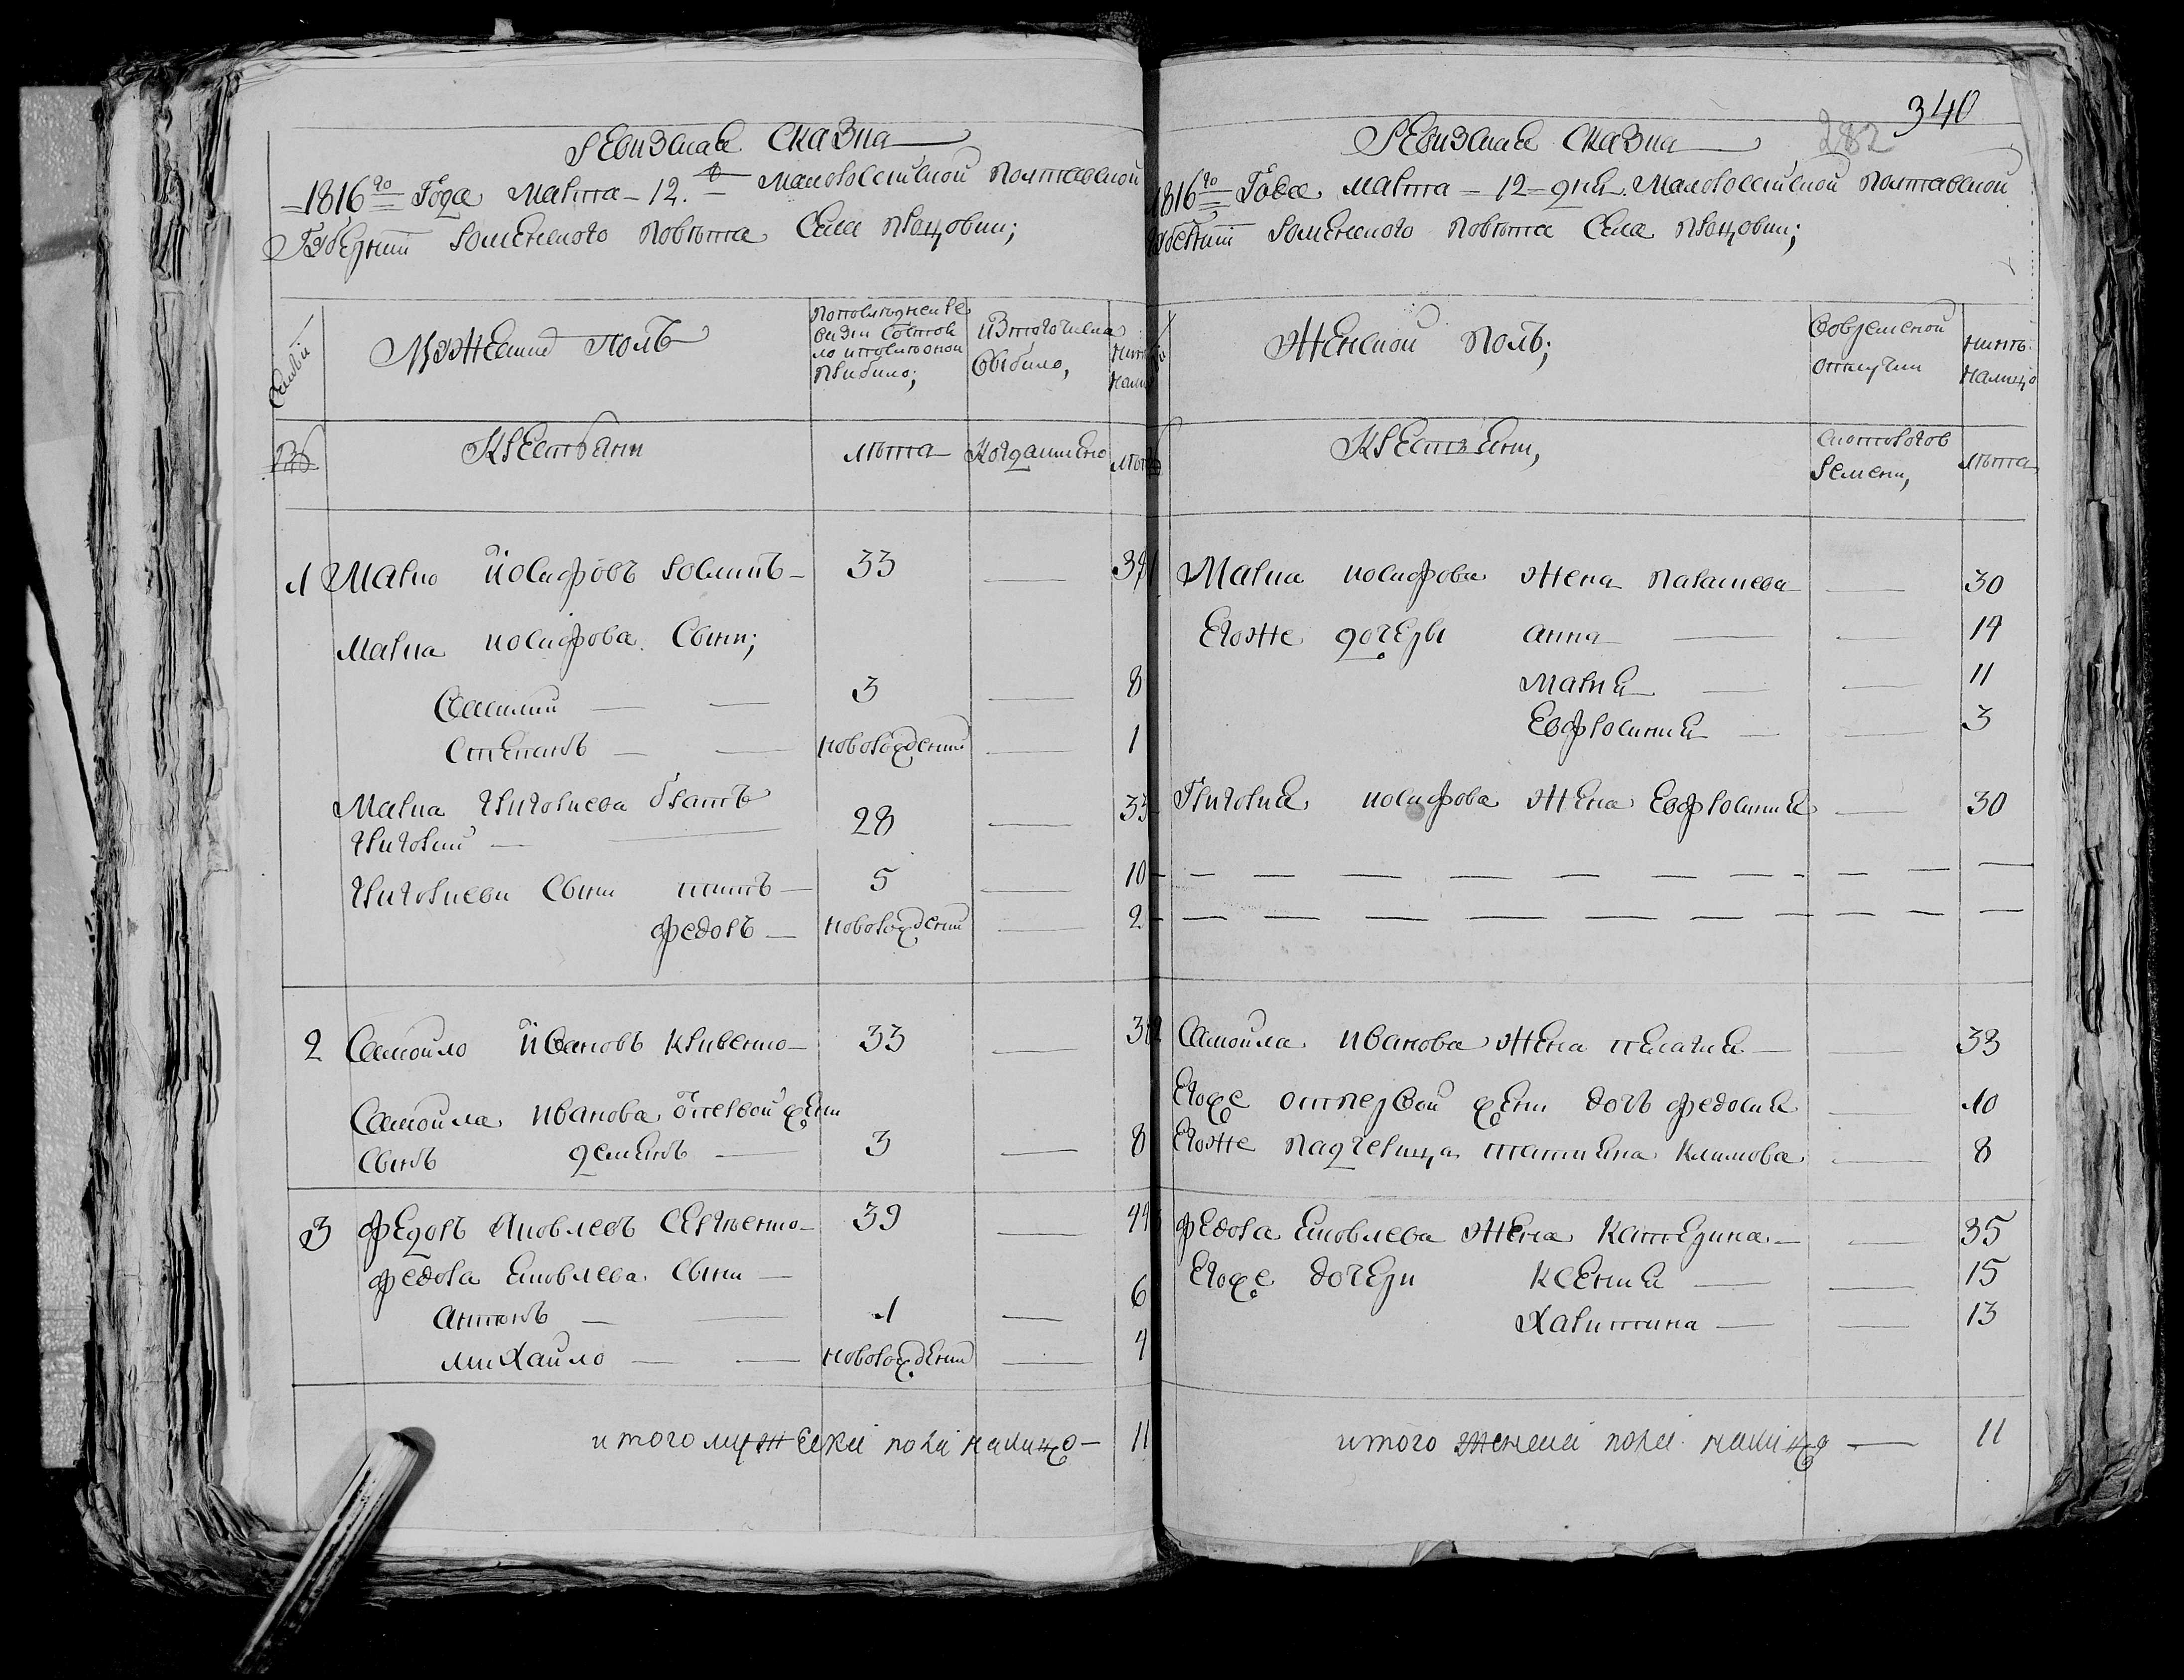 Ревизская Сказка
1816го Года марта 12. Малороссийской Полтавской
Губернии Роменского повета Села
Семьи
Мужеский полъ
По последней
ревизии состоя
ло и после оной
прибыло;
Из того числа
Выбыло,
Ныне
нали
№
Крестьяни
Лета
Когда имено
Лета
1 Марко Иосифовъ 33 — 39
Марка иосифова Сыни;
Василий — — 3 — 8
Степанъ — — новорождений — 1
Марка григориева братъ
григорий — 28 — 33
Григориеви Сыни 5 — 10
федоръ — новорожденый — 2
2 Самойло Ивановъ Кривенко — 33 — 38
Самойла иванова отпервой жени
Синъ демянъ — 3 — 8
3 федоръ Яковлевъ Сергъенко — 39 — 44
федора яковлева Сыни —
антонъ — — 1 — 6
михайло — — новорожденый — 4
итого мужеска пола налицо — 11
340
282
Ревизская Сказка
1816го Года марта 12 дня Малороссийской Полтавской
Губернии Роменского Повета Села
Женской Полъ;
Вовременой
отлучки
Нинъ
налицо
Крестьяни,
Скоторогов
ремени,
Лета
Марка иосифова жена параскева — 30
Егоже дочеры анна — — 14
Мария — — 11
Евфросиния — — 3
Григория иосифова жена Евфросиния — 30
Самойла иванова жена пелагия — — 33
Егоже отпервой жени дочъ федосия — 10
Егоже падчерица татияна Климова — 8
федора яковлева жена катерина — — 35
Егоже дочери ксения — — 15
Харитина — — 13
итого женска пола налицо — 11